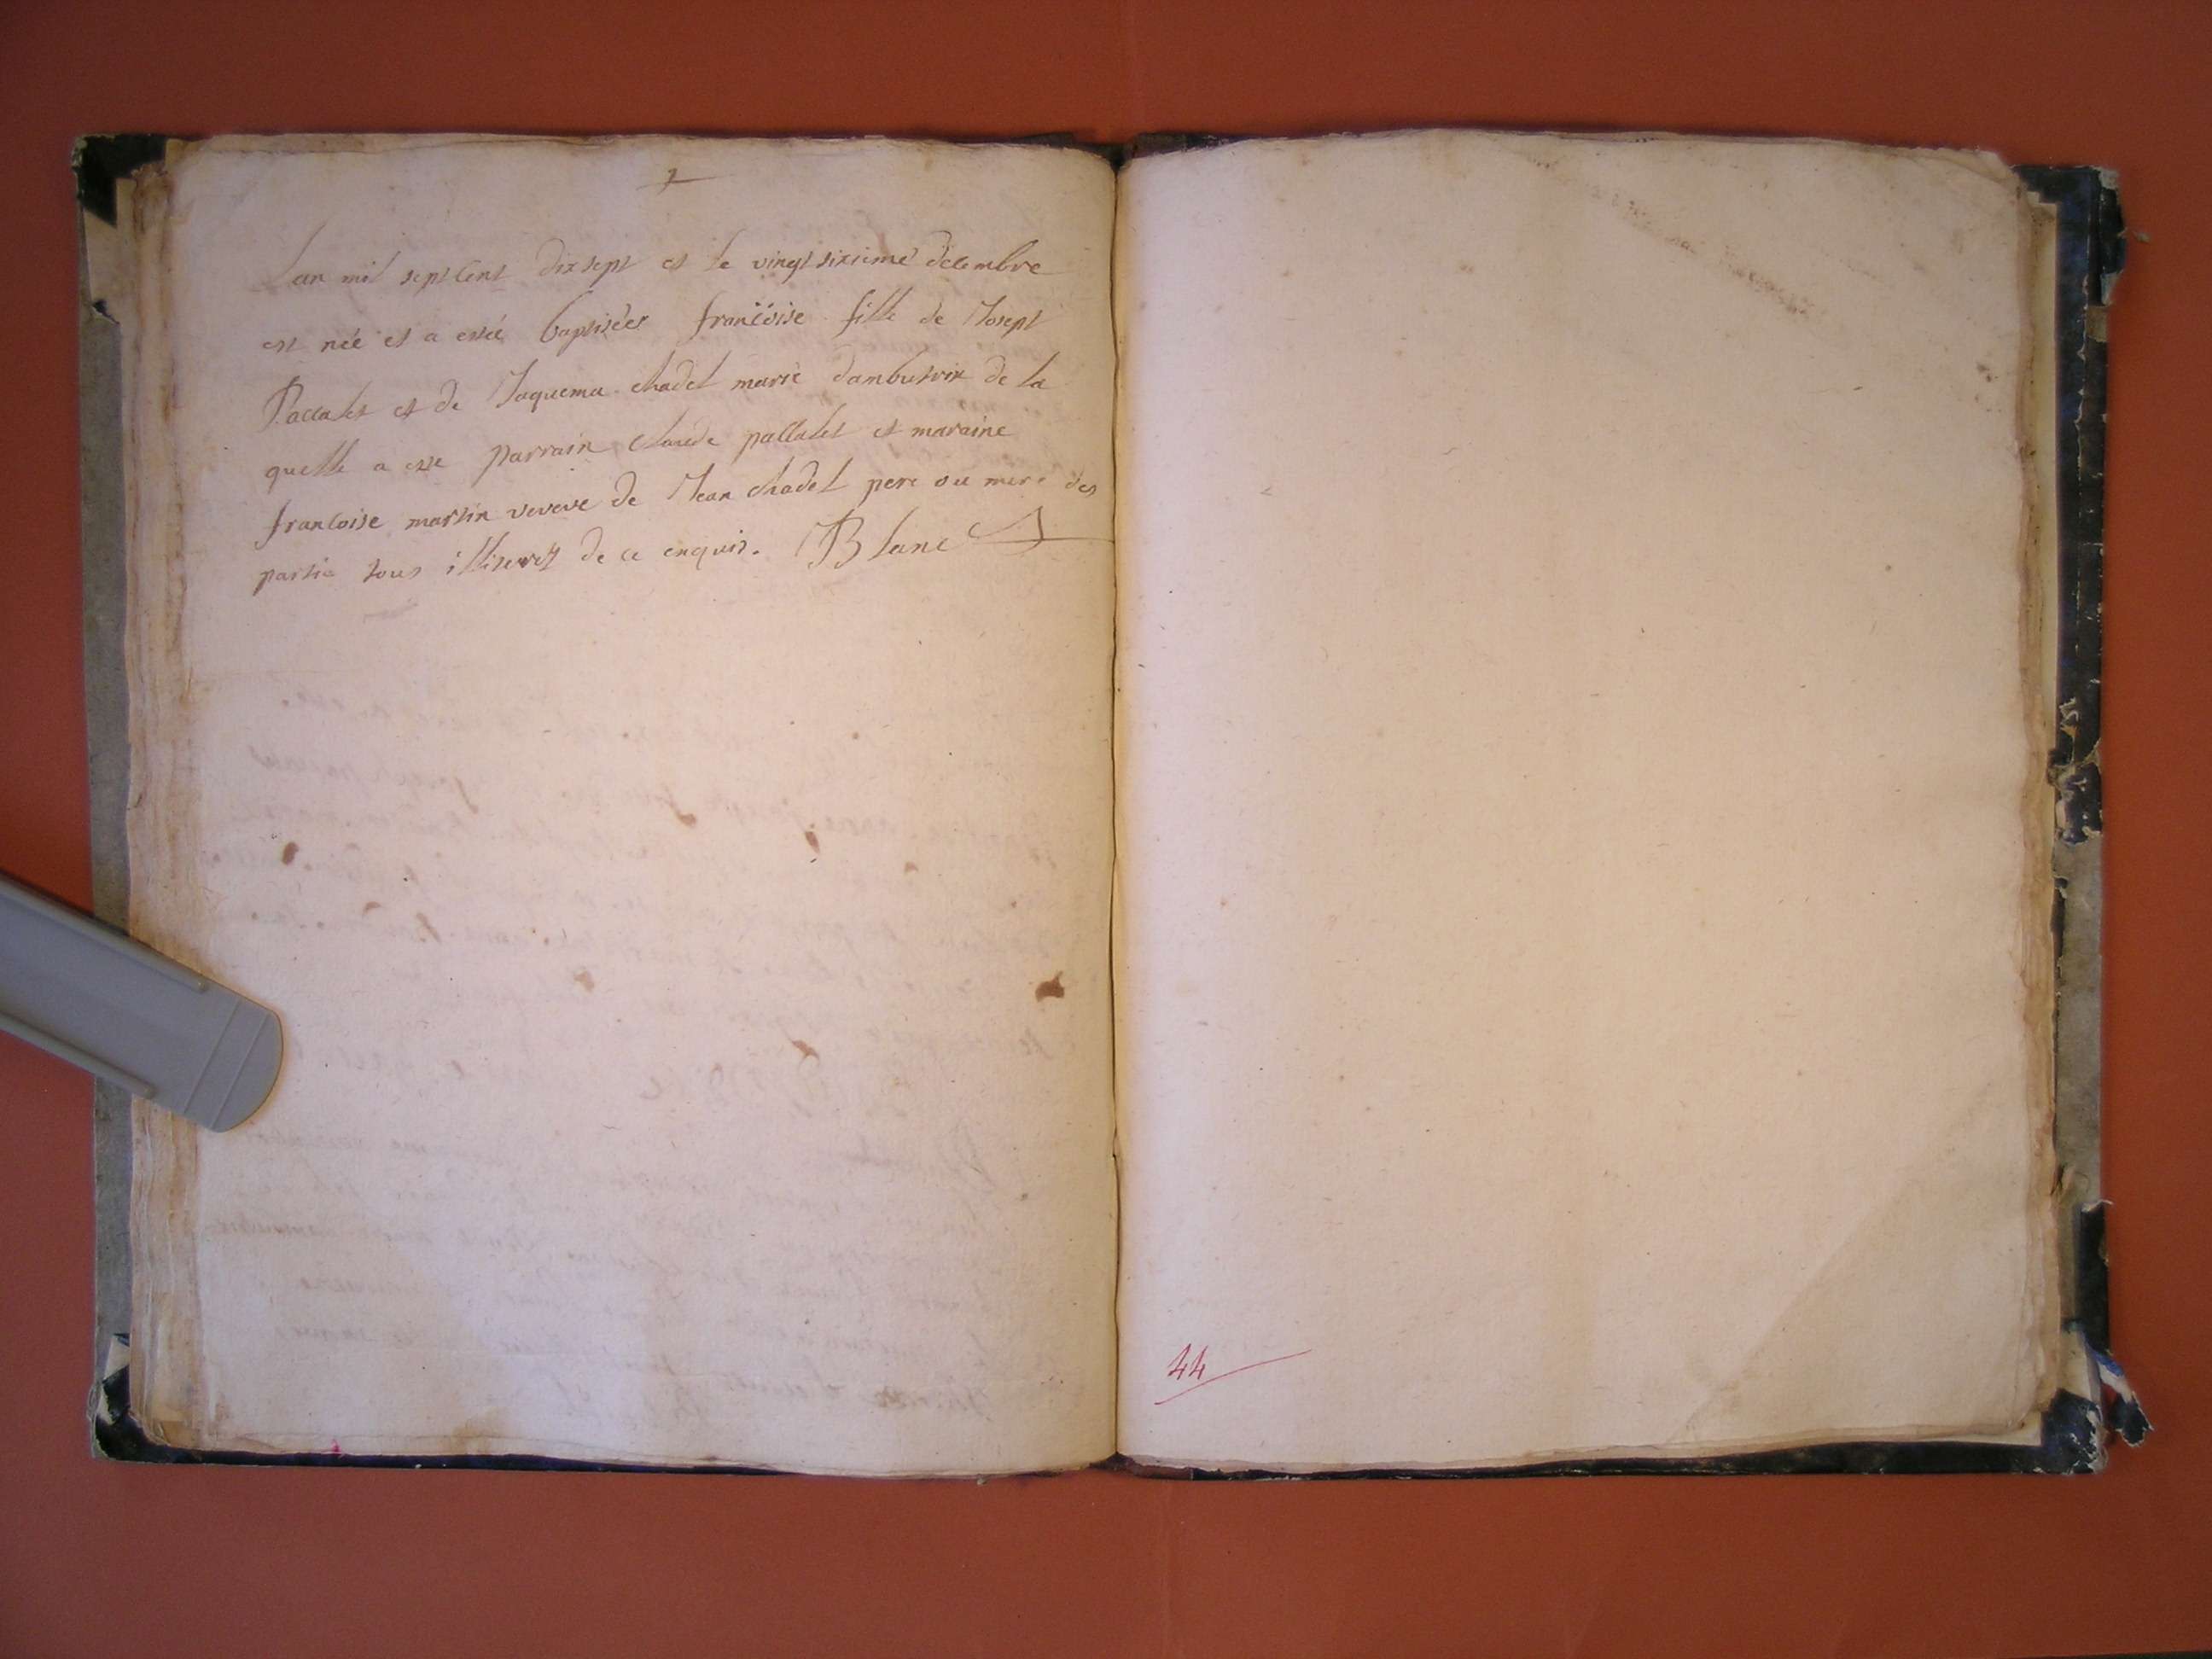 Lan mil septcent dixsept et le vingtsixieme decembre
est néé et a esté baptisées francoise fille de Josept
Paccalet et de Jaquema chadel marié dambutrix de la
quelle a este parrain claude paccalet et maraine
francoise martin veveve de Jean chadel pere ou mere des
partie tous illiterez de ce enquis. Blanc
44